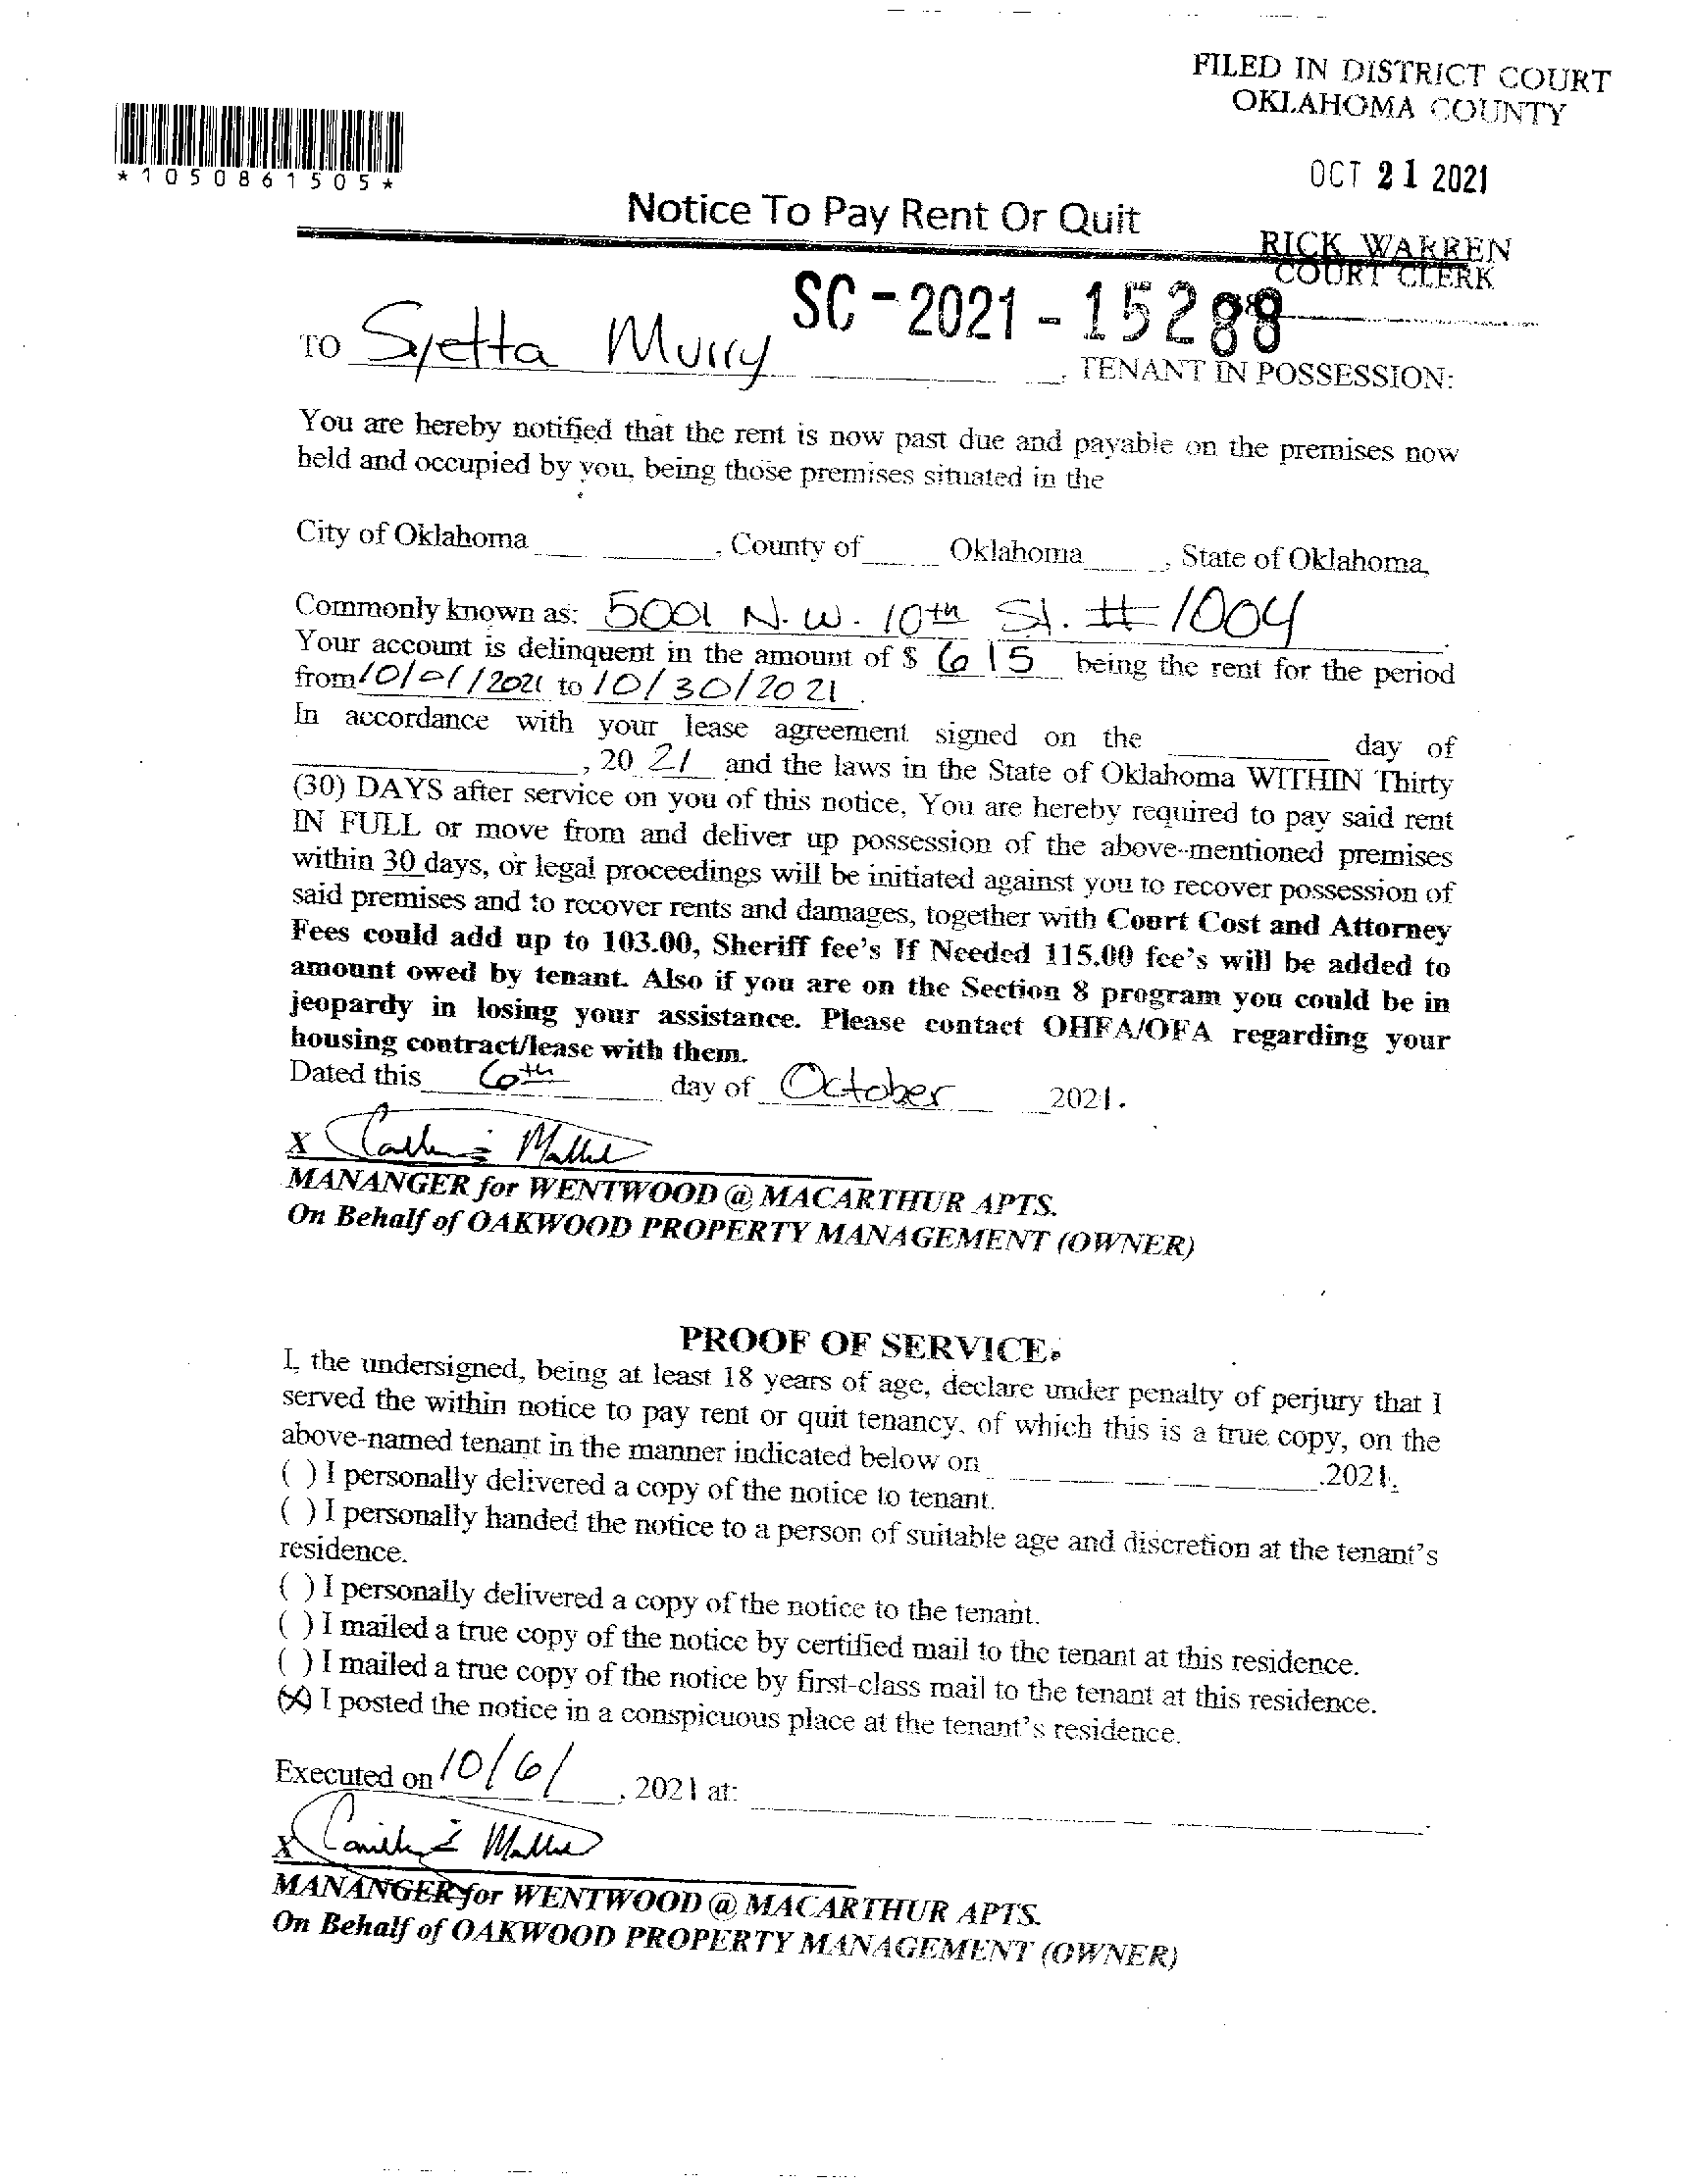 FILED IN DISTRICT COURT
OKLAHOMA COUNTY
OCT 21 2021
*1050861505*
Notice To Pay Rent Or Quit
RICK WARREN
COURT CLERK
SC-2021-15288
TO Syetta Murry, TENANT IN POSSESSION:
You are hereby notified that the rent is now past due and payable on the premises now
held and occupied by you, being those premises situated in the
City of Oklahoma, County of Oklahoma, State of Oklahoma,
Commonly known as: 5001 N.W. 10th St. #1004.
Your account is delinquent in the amount of $ 615 being the rent for the period
from 10/01/2021 to 10/30/2021.
In accordance with your lease agreement signed on the day of
, 20 21 and the laws in the State of Oklahoma WITHIN Thirty
(30) DAYS after service on you of this notice, You are hereby required to pay said rent
IN FULL or move from and deliver up possession of the above-mentioned premises
within 30 days, or legal proceedings will be initiated against you to recover possession of
said premises and to recover rents and damages, together with Court Cost and Attorney
Fees could add up to 103.00, Sheriff fee's If Needed 115.00 fee's will be added to
amount owed by tenant. Also if you are on the Section 8 program you could be in
jeopardy in losing your assistance. Please contact OHFA/OFA regarding your
housing contract/lease with them.
Dated this 6th day of October 2021.
X
MANANGER for WENTWOOD @ MACARTHUR APTS.
On Behalf of OAKWOOD PROPERTY MANAGEMENT (OWNER)
PROOF OF SERVICE.
I, the undersigned, being at least 18 years of age, declare under penalty of perjury that I
served the within notice to pay rent or quit tenancy, of which this is a true copy, on the
above-named tenant in the manner indicated below on .2021.
( ) I personally delivered a copy of the notice to tenant.
( ) I personally handed the notice to a person of suitable age and discretion at the tenant's
residence.
( ) I personally delivered a copy of the notice to the tenant.
( ) I mailed a true copy of the notice by certified mail to the tenant at this residence.
( ) I mailed a true copy of the notice by first-class mail to the tenant at this residence.
(X) I posted the notice in a conspicuous place at the tenant's residence.
Executed on 10/6/, 2021 at:
X
MANANGER for WENTWOOD @ MACARTHUR APTS.
On Behalf of OAKWOOD PROPERTY MANAGEMENT (OWNER)